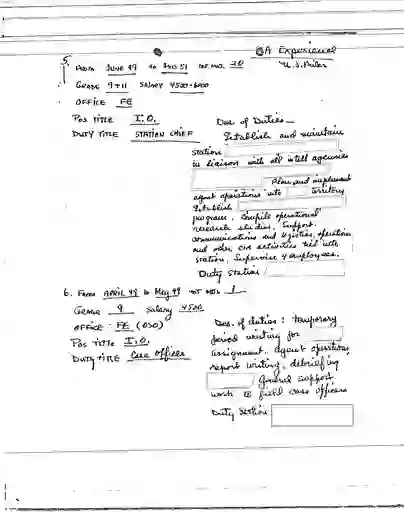 CIA Experience
5. From June 49 to Dec 51 tot mos. 30
Grade 9+11 Salary 4500-6400
Office FE
Pos Title I.O.
Duty Title Station Chief
Des of Duties —
Establish and maintain
station
in liaison with all intell agencies
Plan and implement
agent operations into territory
Establish
programs. Compile operational
research studies. Support.
communications and logistics, operations
and other CIA activities tied with
station. Supervise 4 employees.
Duty station
6. From April 49 to May 49 tot mos 1
Grade 9 Salary 4500
Office FE (OSO)
Pos Title I.O.
Duty Title Case Officer
Des. of duties: temporary
period waiting for
assignment. Agent operations,
report writing, debriefing
General support
work to field case officers
Duty Station